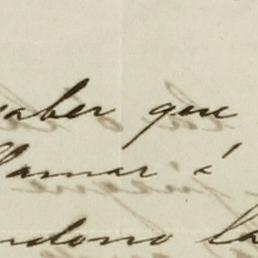 saber que
llamar á
ndono la